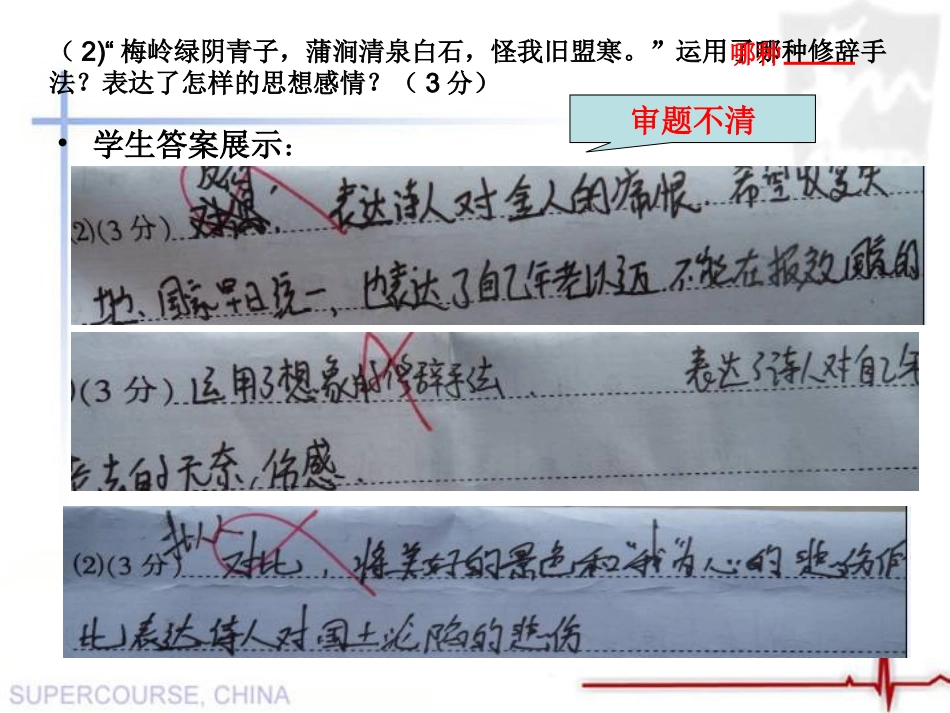 （2)“梅岭绿阴青子，蒲涧清泉白石，怪我旧盟寒。”运用了哪种修辞手
法？表达了怎样的思想感情？（3分）
哪种
审题不清
• 学生答案展示：
反问，
2)(3分) 表达诗人对金人的痛恨．希望收复失
地、国家早日统一，也表达了自己年老以迈 不能在报效国家的
)(3分) 运用了想象的修辞手法、 表达了诗人对自己年
老去的无奈，伤感．
(2)(3分) 对比，将美好的景色和“我”内心的悲伤作
比 表达诗人对国土沦陷的悲伤
SUPERCOURSE, CHINA